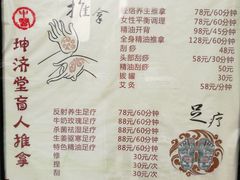 推拿
坤济堂盲人推拿
经络养生推拿 78元/60分钟
女性平衡调理 78元/60分钟
精油开背 98元/45分钟
全身精油推拿 128元/60分钟
刮痧 48元
头部刮痧 30元
精油刮痧 50元
拔罐 30元
艾灸 58元
足疗
反射养生足疗 78元/60分钟
牛奶玫瑰足疗 88元/60分钟
杀菌祛湿足疗 88元/60分钟
生姜驱寒足疗 88元/60分钟
特色精油足疗 88元/60分钟
修 30元/次
捏 30元/次
刮 30元/次